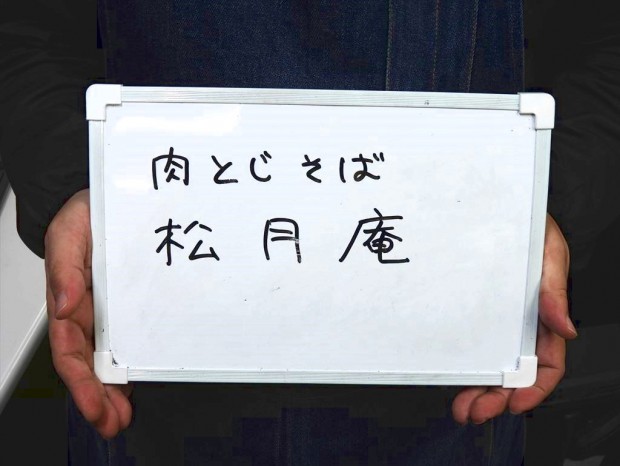 肉とじそば
松月庵